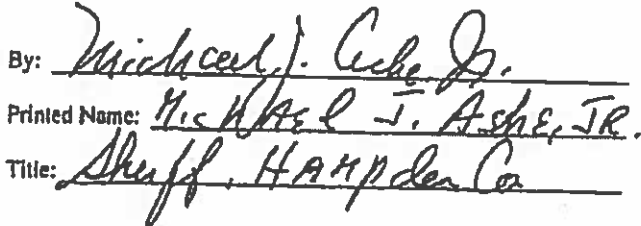 By: Michael J. Ashe Jr.
Printed Name: MichAEl J. AshE, JR.
Title: Sheriff, HAMpden Co